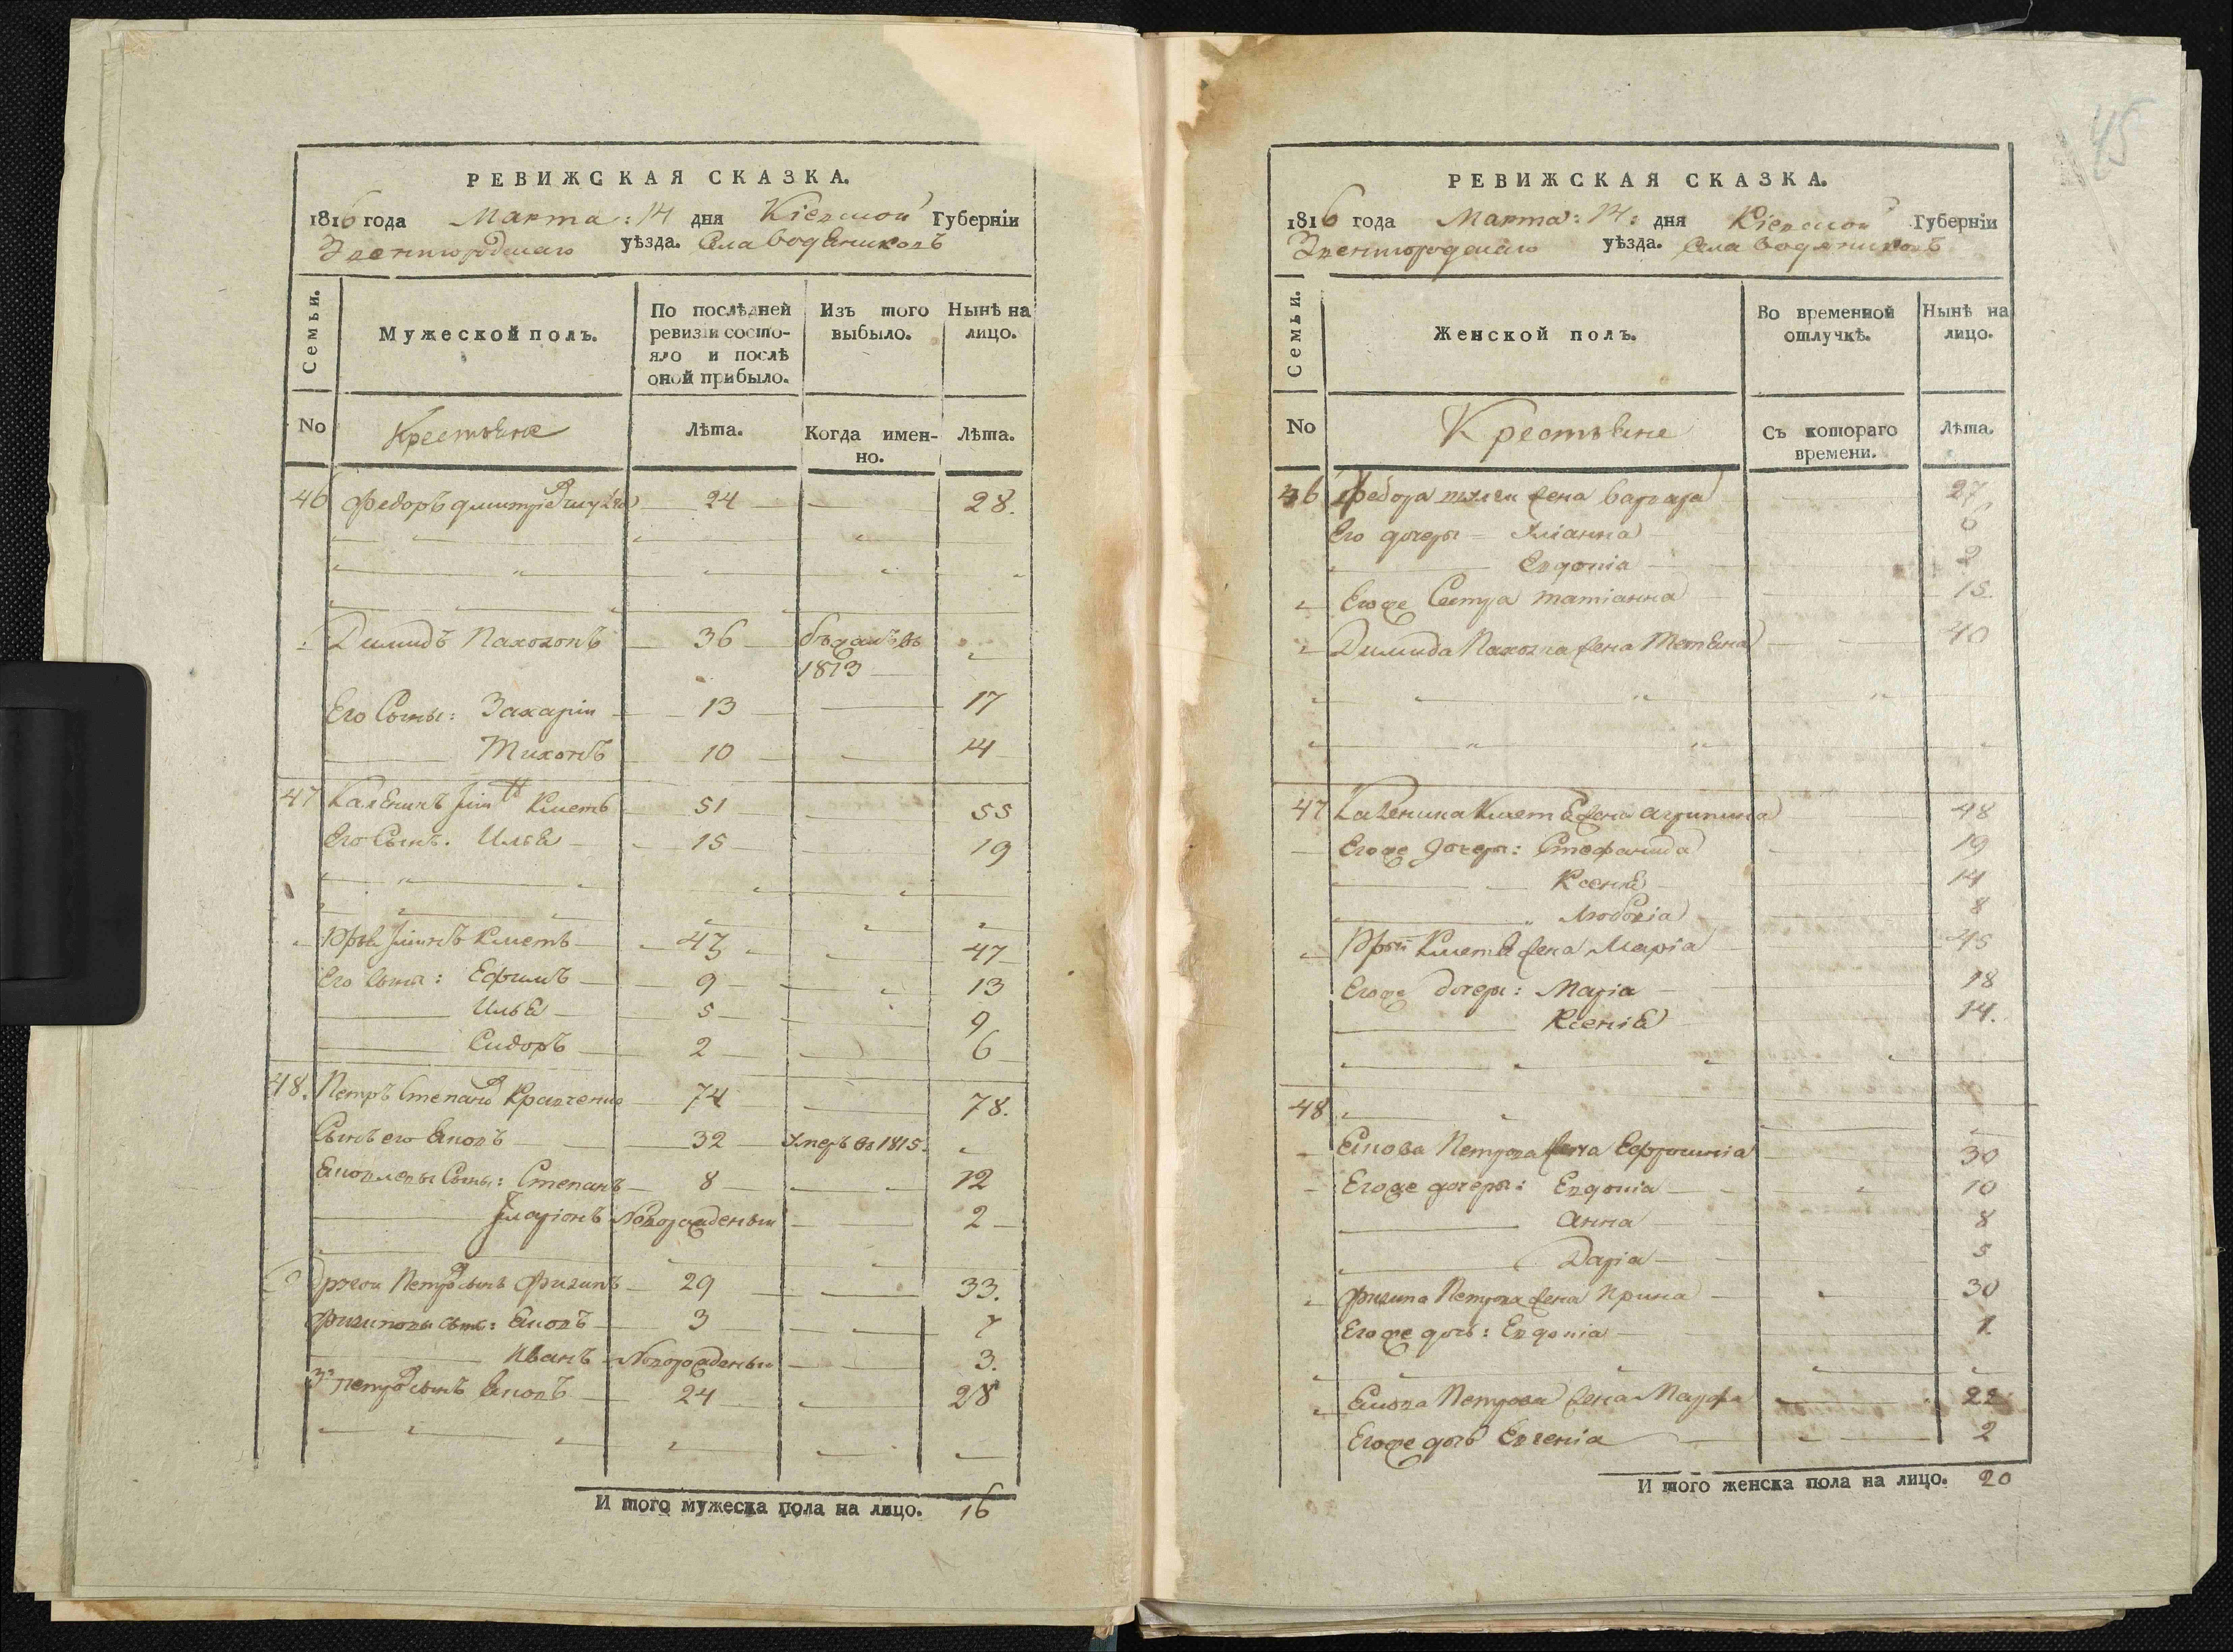 РЕВИЖСКАЯ СКАЗКА.
1816 года Марта: 14 дня Кіевской Губерніи
Звенигородскаго уѣзда. Села Водяниковъ
Семьи. Мужеской полъ. По послѣдней ревизіи состояло и послѣ оной прибыло. Изъ того выбыло. Нынѣ на лицо.
No Крестьяне Лѣта. Когда именно. Лѣта.
46 Федоръ Дмитріевъ 24 28.
Димидъ Пахолокъ 36 бѣжалъ въ 1813
Его Сыны: Захарій 13 17
Тихонъ 10 14
47 Каленикъ Кметь 51 55
Его Сынъ. Илья 15 19
Кметь 43 47
Его Сыны: Ефимъ 9 13
Илья 5 9
Сидоръ 2 6
48. Петръ Степановъ Кравченко 74 78.
Сынъ его Яковъ 32 Умеръ въ 1815.
Яковлевы Сыны: Степанъ 8 12
Iларіонъ Новорожденный 2
Другой Петровъ сынъ Филипъ 29 33.
Филиповы сыны: Яковъ 3 7
Иванъ Новорожденный 3.
3й Петровъ сынъ Яковъ 24 28
И того мужеска пола на лицо. 16
45
РЕВИЖСКАЯ СКАЗКА.
1816 года Марта: 14: дня Кіевской Губерніи
Звенигородскаго уѣзда. Села Водяниковъ
Семьи. Женской полъ. Во временной отлучкѣ. Нынѣ на лицо.
No Крестьяне Съ котораго времени. Лѣта.
46 Федора жена Варвара 27
Его дочери Уліанна 6
Евдокія 2
Егоже Сестра Татіанна 15.
Димида Пахолка жена Тетяна 40
47 Каленика Кметя жена Агрипина 48
Егоже дочери: Стефанида 19
Ксенія 14
Любовія 8
Кметя жена Марія 45
Егоже дочери: Марія 18
Ксенія 14.
48
Якова Петрова жена Ефросинія 30
Егоже дочери: Евдокія 10
Анна 8
Дарія 5
Филипа Петрова жена Ирина 30
Егоже дочь: Евдокія 1.
Якова Петрова жена Марфа 22
Егоже дочь Евгенія 2
И того женска пола на лицо. 20